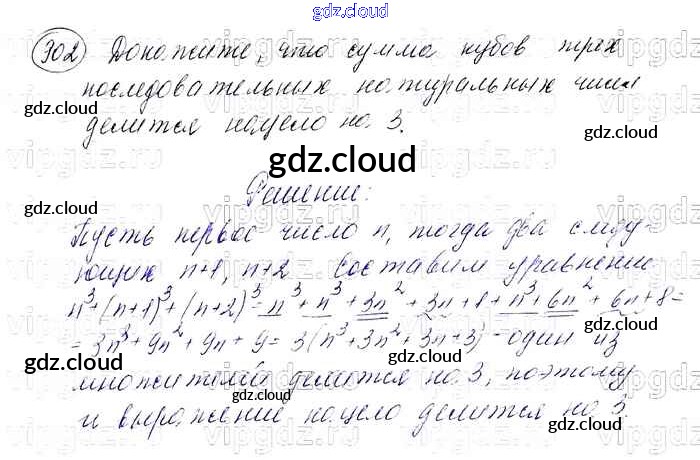 gdz.cloud
302 Докажите, что сумма кубов трех
последовательных натуральных чисел
gdz.cloud
делится нацело на 3.
gdz.cloud
gdz.cloud
Решение:
gdz.cloud
gdz.cloud
Пусть первое число n, тогда два следу-
ющих n+1, n+2. Составим уравнение
n³+(n+1)³+(n+2)³=n³+n³+3n²+3n+1+n³+6n²+6n+8=
gdz.cloud
gdz.cloud
=3n³+9n²+9n+9=3(n³+3n²+3n+3) - один из
множителей делится на 3, поэтому
и выражение нацело делится на 3.
gdz.cloud
gdz.cloud